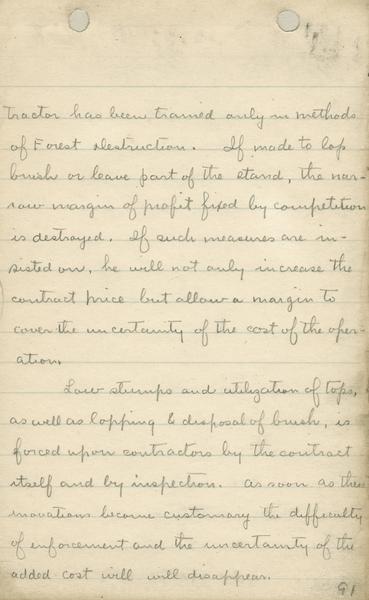 tractor has been trained only in methods
of Forest destruction. If made to lop
brush or leave part of the stand, the nar-
row margin of profit fixed by competition
is destroyed. If such measures are in-
sisted on, he will not only increase the
contract price but allow a margin to
cover the uncertainty of the cost of the oper-
ation.
Low stumps and utilization of tops,
as well as lopping & disposal of brush, is
forced upon contractors by the contract
itself and by inspection. As soon as these
inovations become customary the difficulty
of enforcement and the uncertainty of the
added cost will will disappear.
91